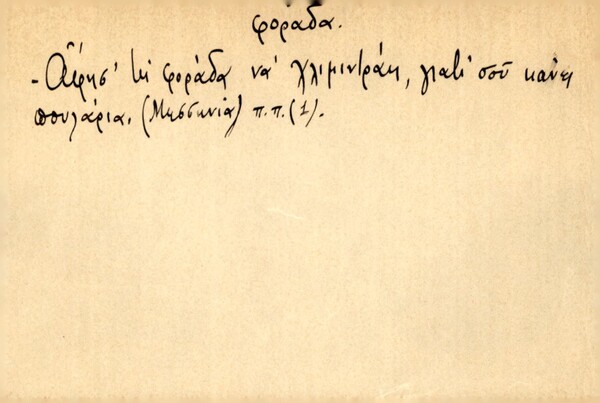 φοράδα.
- Ἄφησ' τὴ φοράδα νὰ γλιμιντράη, γιατὶ σοῦ κάνει
πουλάρια. (Μεσσηνία) π.π. (1).